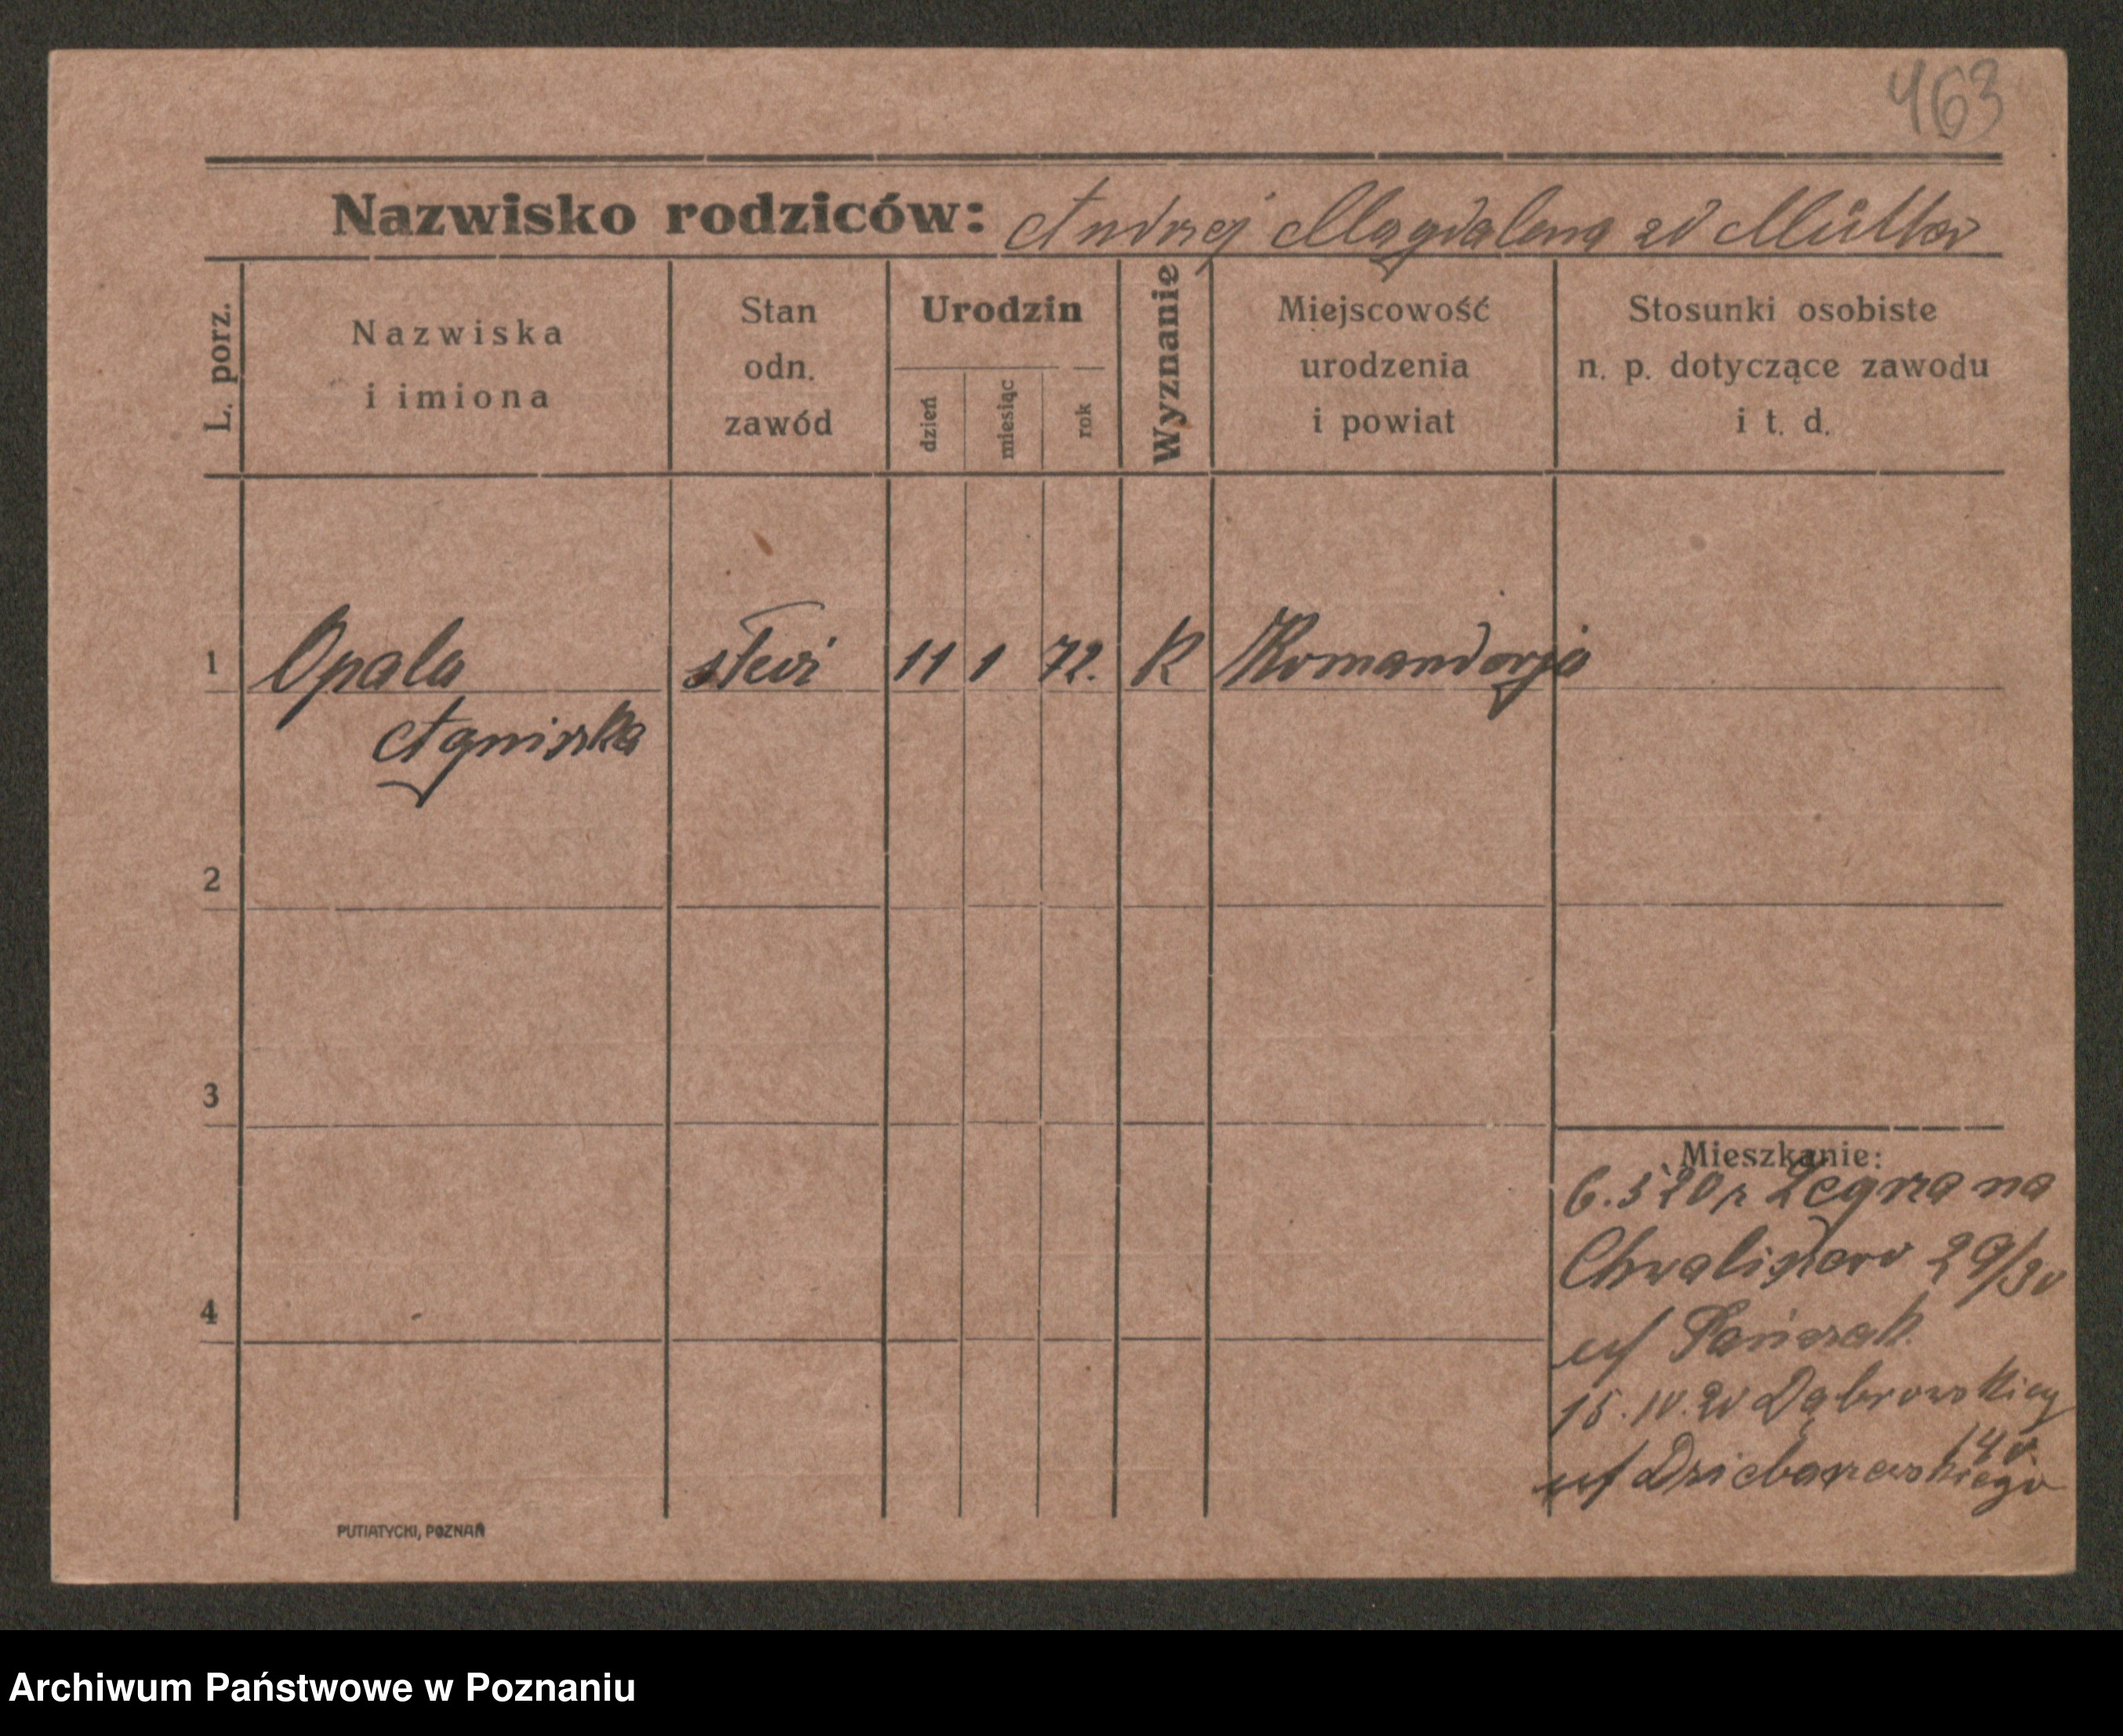 463
Nazwisko rodziców: Andrzej Magdalena zd Müller
L. porz.
Nazwiska
i imiona
Stan
odn.
zawód
Urodzin
dzień
miesiąc
rok
Wyznanie
Miejscowość
urodzenia
i powiat
Stosunki osobiste
n. p. dotyczące zawodu
i t. d.
1 Opala 11 1 72. K Komandorja
Agniszka
2
3
4
Mieszkanie:
6.5 20 z Żegrza na
Chwaliszewo 29/30
15.IV.20 Dąbrowskieg
14
PUTIATYCKI, POZNAŃ
Archiwum Państwowe w Poznaniu